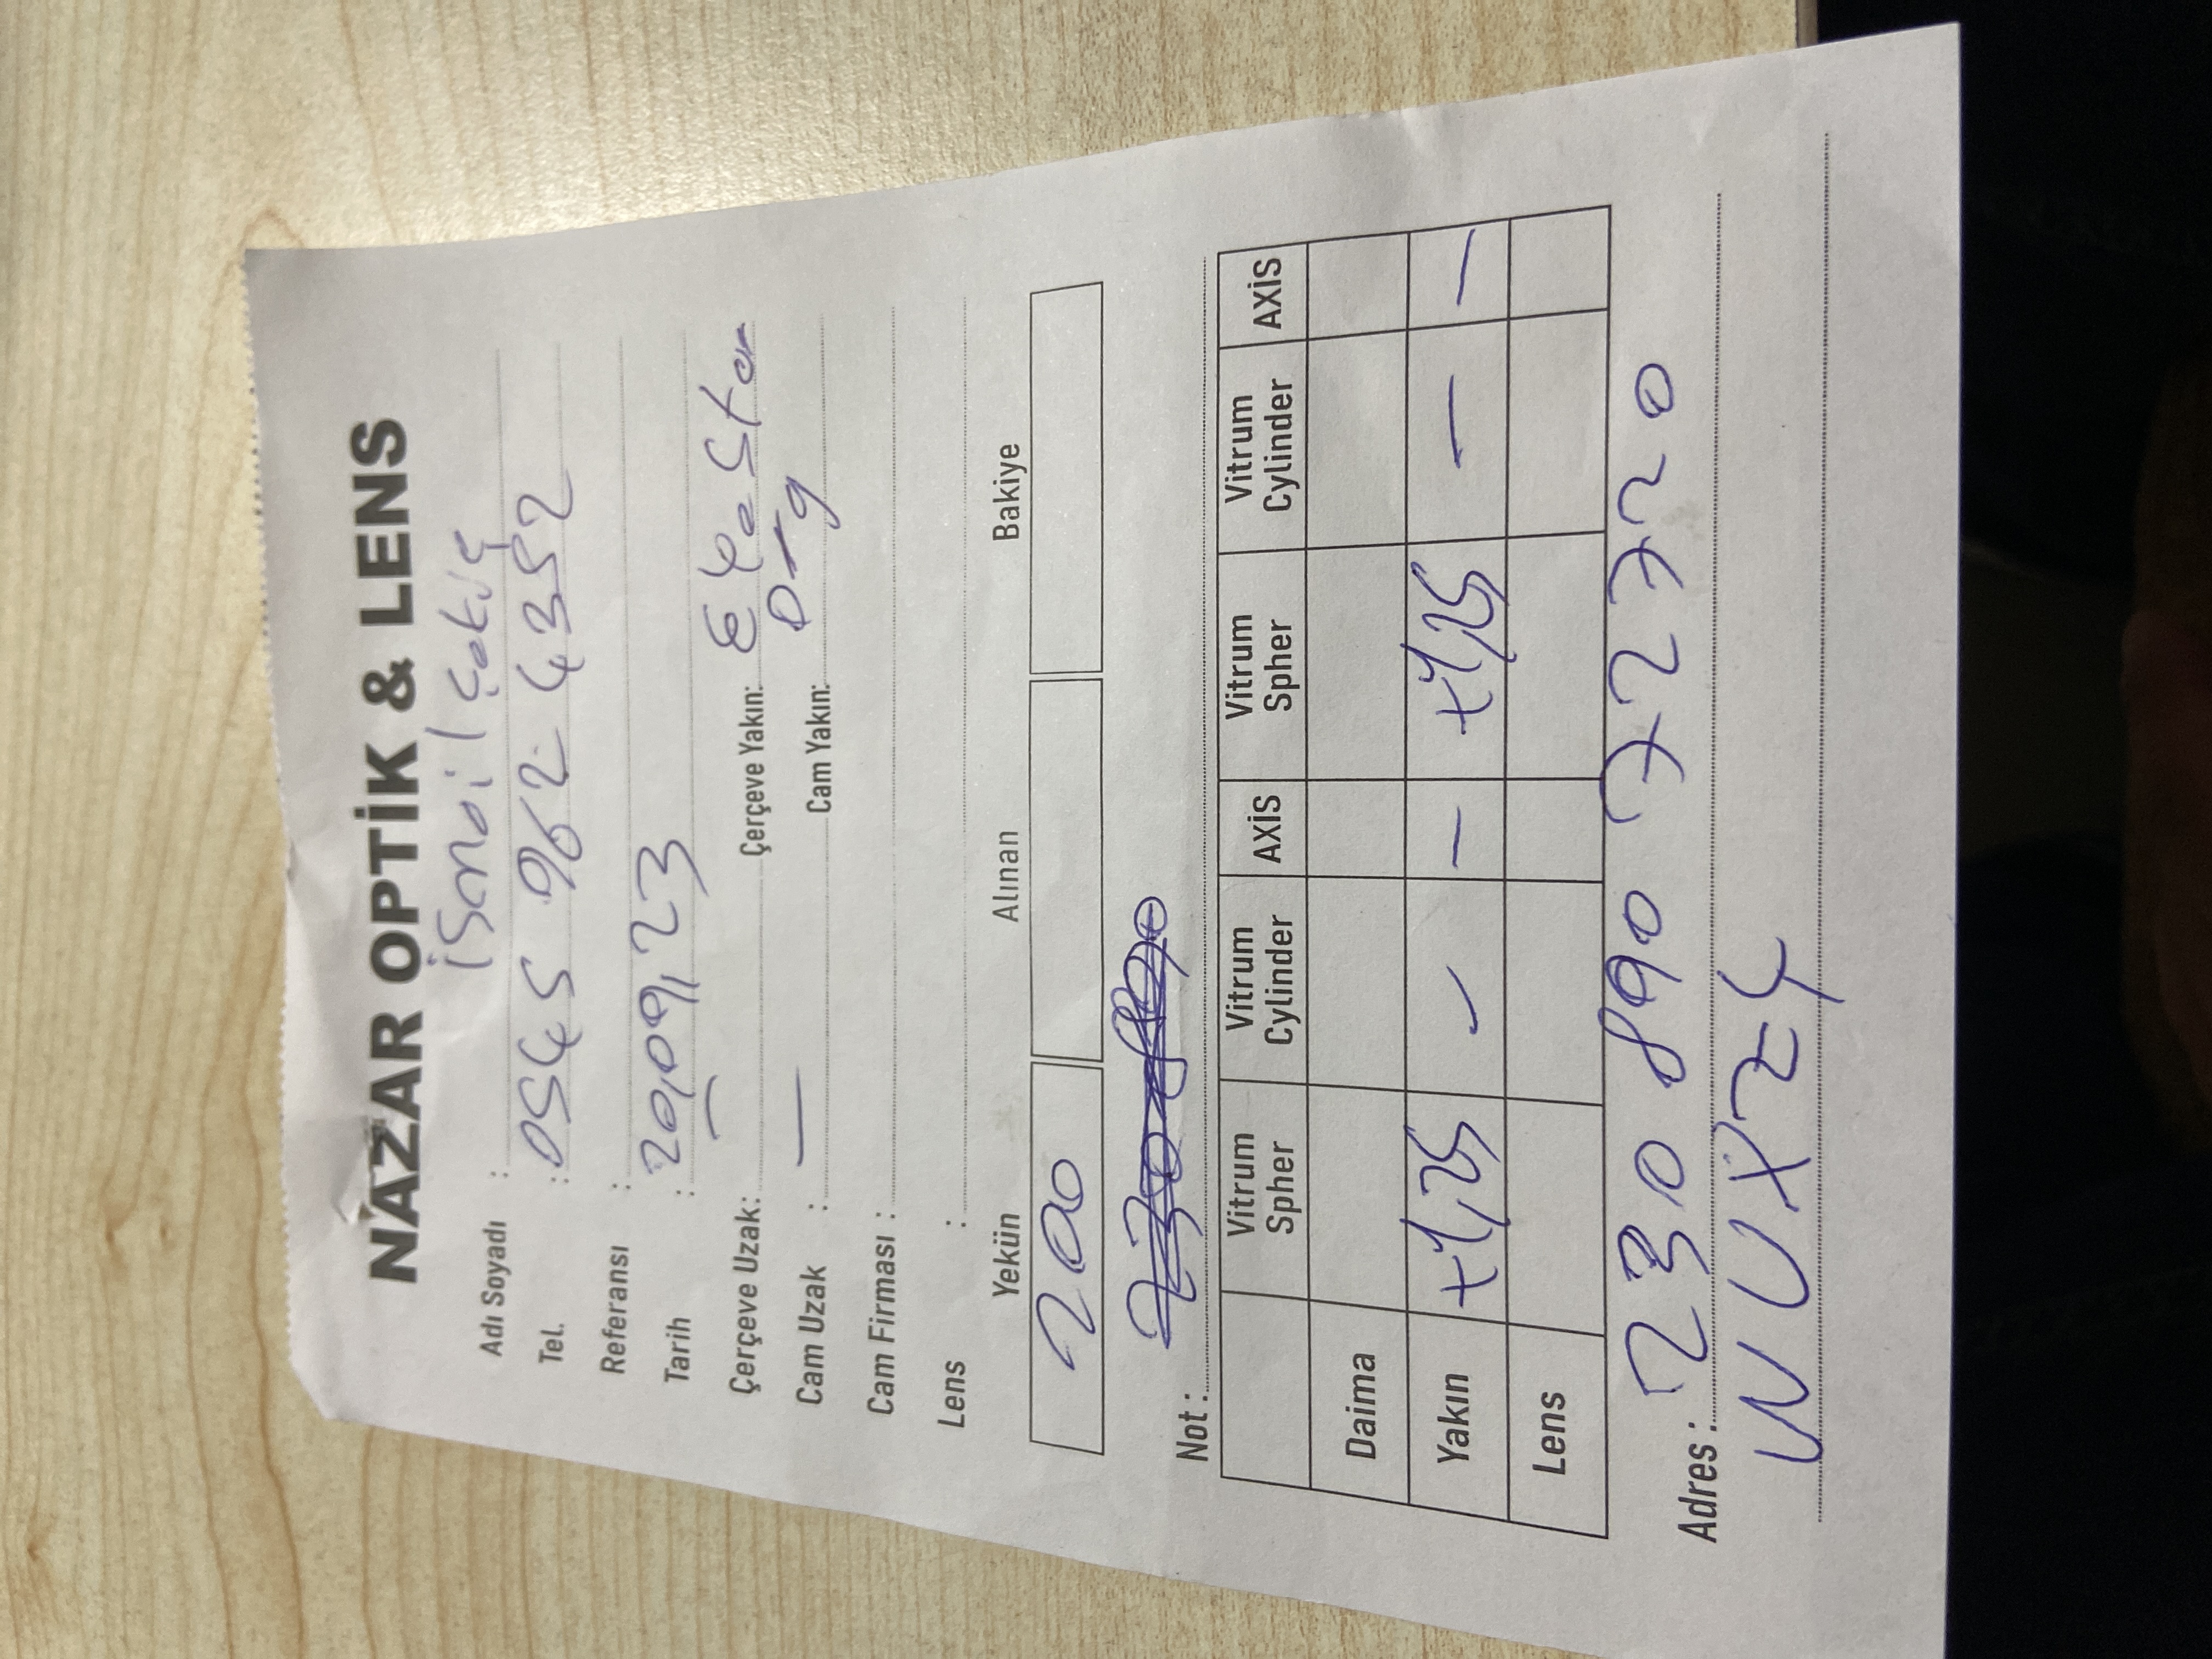 NAZAR OPTİK & LENS
Adı Soyadı : ismail Çakıç
Tel. : 0545 962 4352
Referansı :
Tarih : 20,09,23
Çerçeve Uzak: — Çerçeve Yakın:
Cam Uzak : — Cam Yakın: Org
Cam Firması :
Lens :
Yekün Alınan Bakiye
200
Not :
Vitrum Spher Vitrum Cylinder AXİS Vitrum Spher Vitrum Cylinder AXİS
Daima
Yakın +1,25 — — +1,25 — —
Lens
Adres : 230 890 72720
WUXZ4